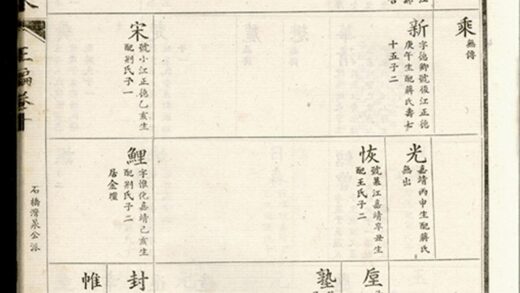 乘
無傳
新
字德鄉號後江正德
庚午生配蔣氏壽七
十五子二
宋
號小江正德乙亥生
配荆氏子一
光
嘉靖丙申生配蔣氏
無出
恢
號景江嘉靖辛丑生
配王氏子二
鯉
字惟化嘉靖己亥生
配荆氏子二
居金壇
塾
封
帷
正編卷
石橋灣
公派